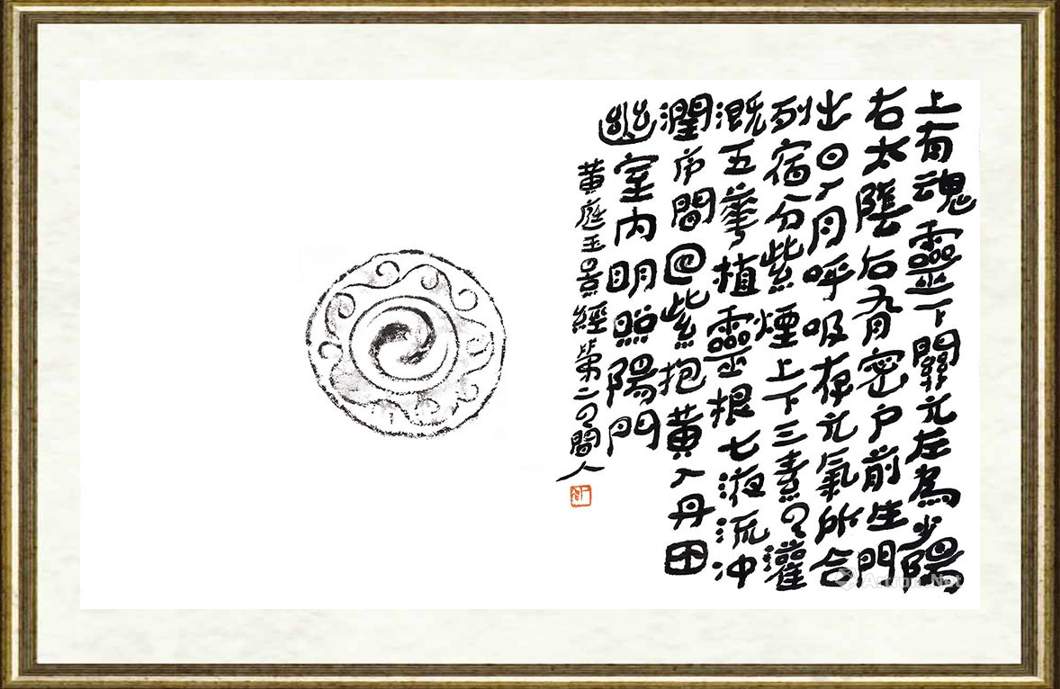 上有魂靈下關元左為少陽
右太陰后有密户前生門
出日入月呼吸存元氣所合
列宿分紫煙上下三素云灌
溉五華植靈根七液流冲
潤庐間回紫抱黃入丹田
幽室内明照陽門
黃庭玉景經第二云間人
Artron.Net